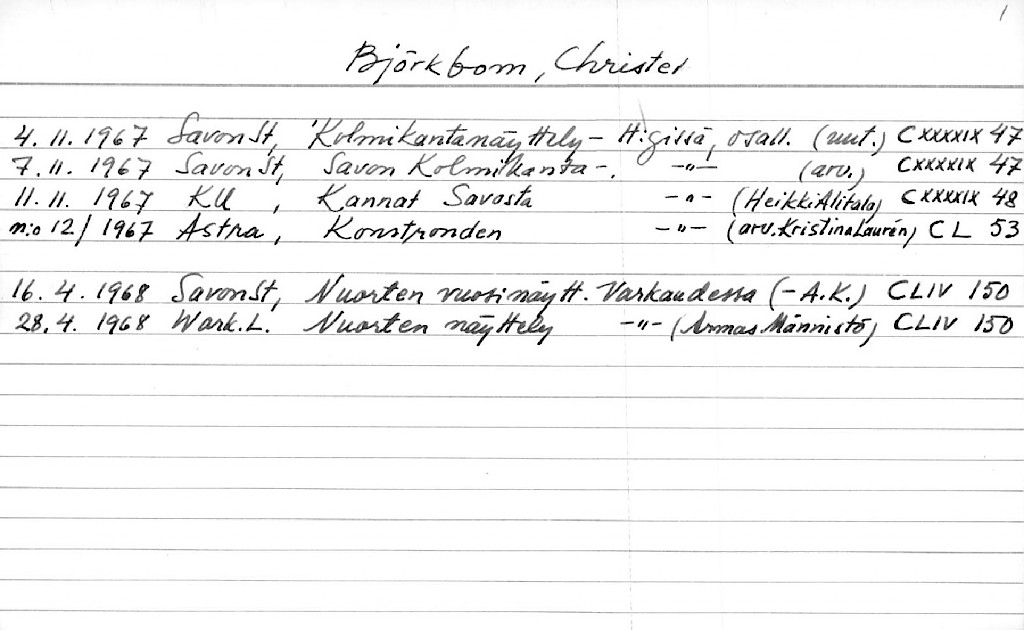 1
Björkbom, Christer
4.11.1967 SavonSt, Kolmikantanäyttely – H:gissä, osall. (uut.) CXXXXIX 47
7.11.1967 SavonSt, Savon Kolmikanta-. –"– (arv.) CXXXXIX 47
11.11.1967 KU, Kannat Savosta –"– (Heikki Alitalo) CXXXXIX 48
n:o 12/1967 Astra, Konstronden –"– (arv. Kristina Laurén) CL 53
16.4.1968 SavonSt, Nuorten vuosinäytt. Varkaudessa (–A.K.) CLIV 150
28.4.1968 Wark.L. Nuorten näyttely –"– (Armas Männistö) CLIV 150